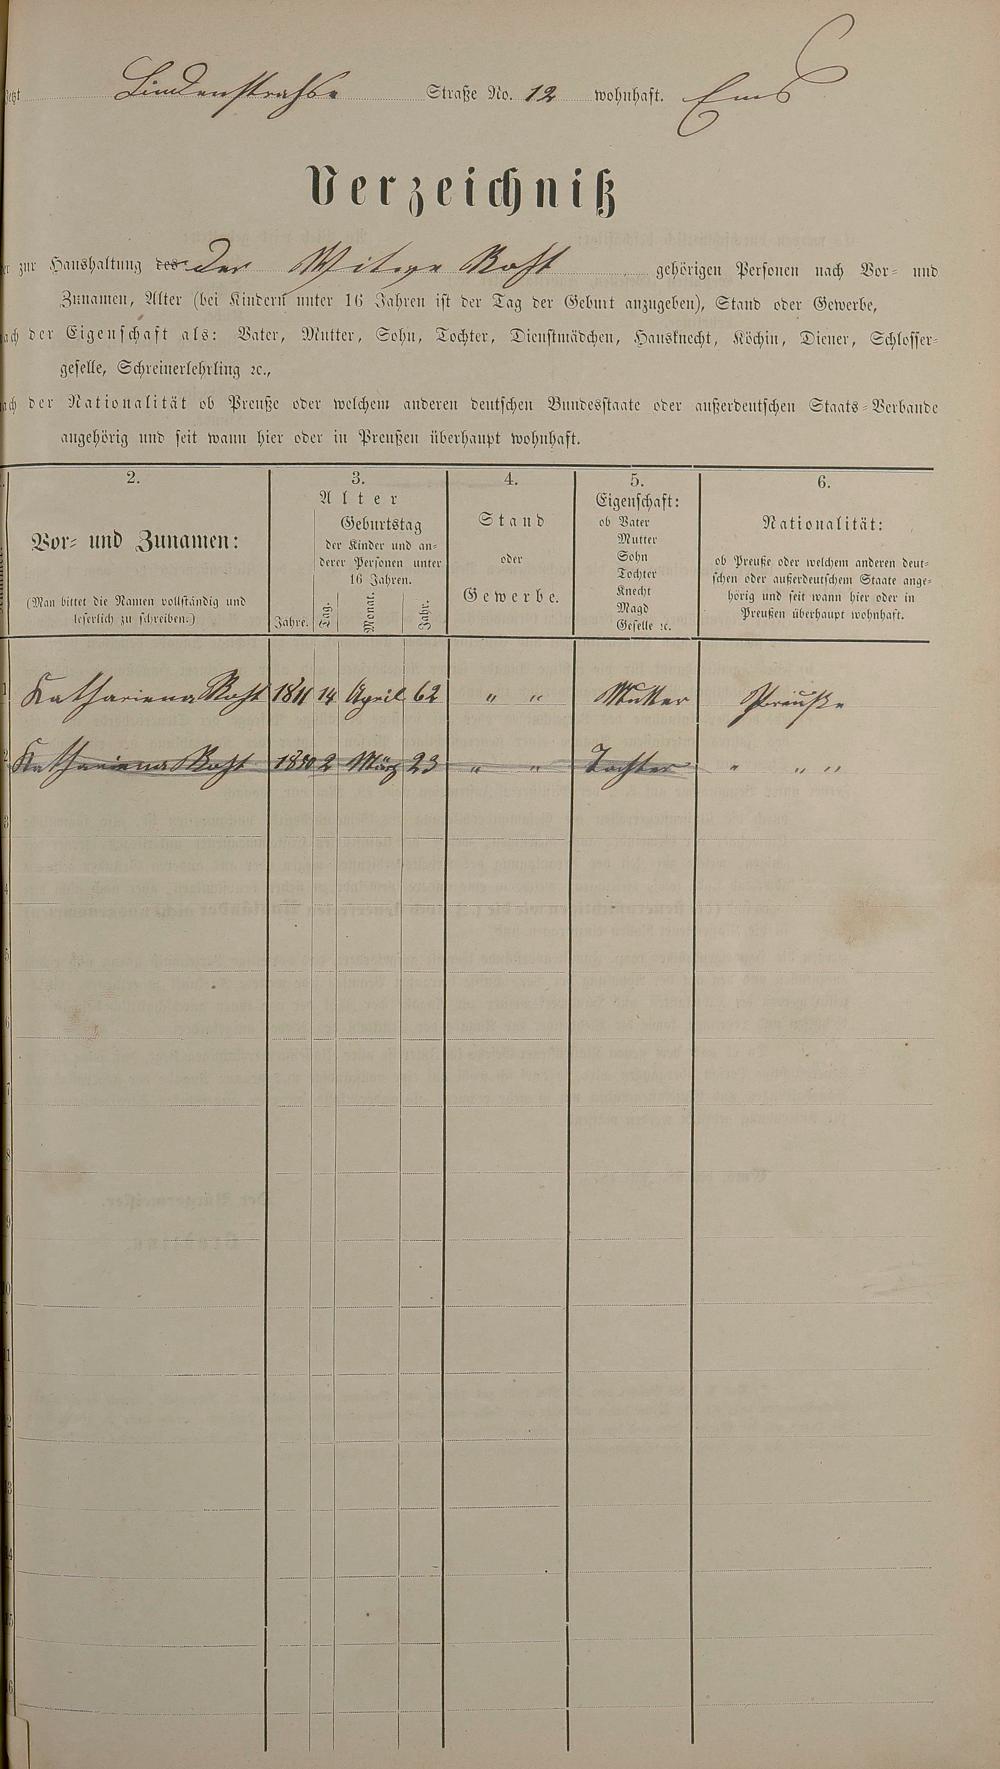 Lindenstrahse Straße No. 12 wohnhaft. Ems
Verzeichniß
zur Haushaltung des der Witwe Rost gehörigen Personen nach Vor- und
Zunamen, Alter (bei Kindern unter 16 Jahren ist der Tag der Geburt anzugeben), Stand oder Gewerbe,
nach der Eigenschaft als: Vater, Mutter, Sohn, Tochter, Dienstmädchen, Hausknecht, Köchin, Diener, Schlosser-
geselle, Schreinerlehrling ꝛc.,
nach der Nationalität ob Preuße oder welchem anderen deutschen Bundesstaate oder außerdeutschen Staats-Verbande
angehörig und seit wann hier oder in Preußen überhaupt wohnhaft.
2.
Vor- und Zunamen:
(Man bittet die Namen vollständig und
leserlich zu schreiben.)
3.
Alter
Geburtstag
der Kinder und an-
derer Personen unter
16 Jahren.
Jahre. Tag. Monat. Jahr.
4.
Stand
oder
Gewerbe.
5.
Eigenschaft:
ob Vater
Mutter
Sohn
Tochter
Knecht
Magd
Geselle ꝛc.
6.
Nationalität:
ob Preuße oder welchem anderen deut-
schen oder außerdeutschem Staate ange-
hörig und seit wann hier oder in
Preußen überhaupt wohnhaft.
1 Kathariena Rost 1811 14 April 62 " " Mutter Preuße
2 Kathariena Rost 1850 2 März 23 " " Tochter " " "
3
4
5
6
7
8
9
10
11
12
13
14
15
16